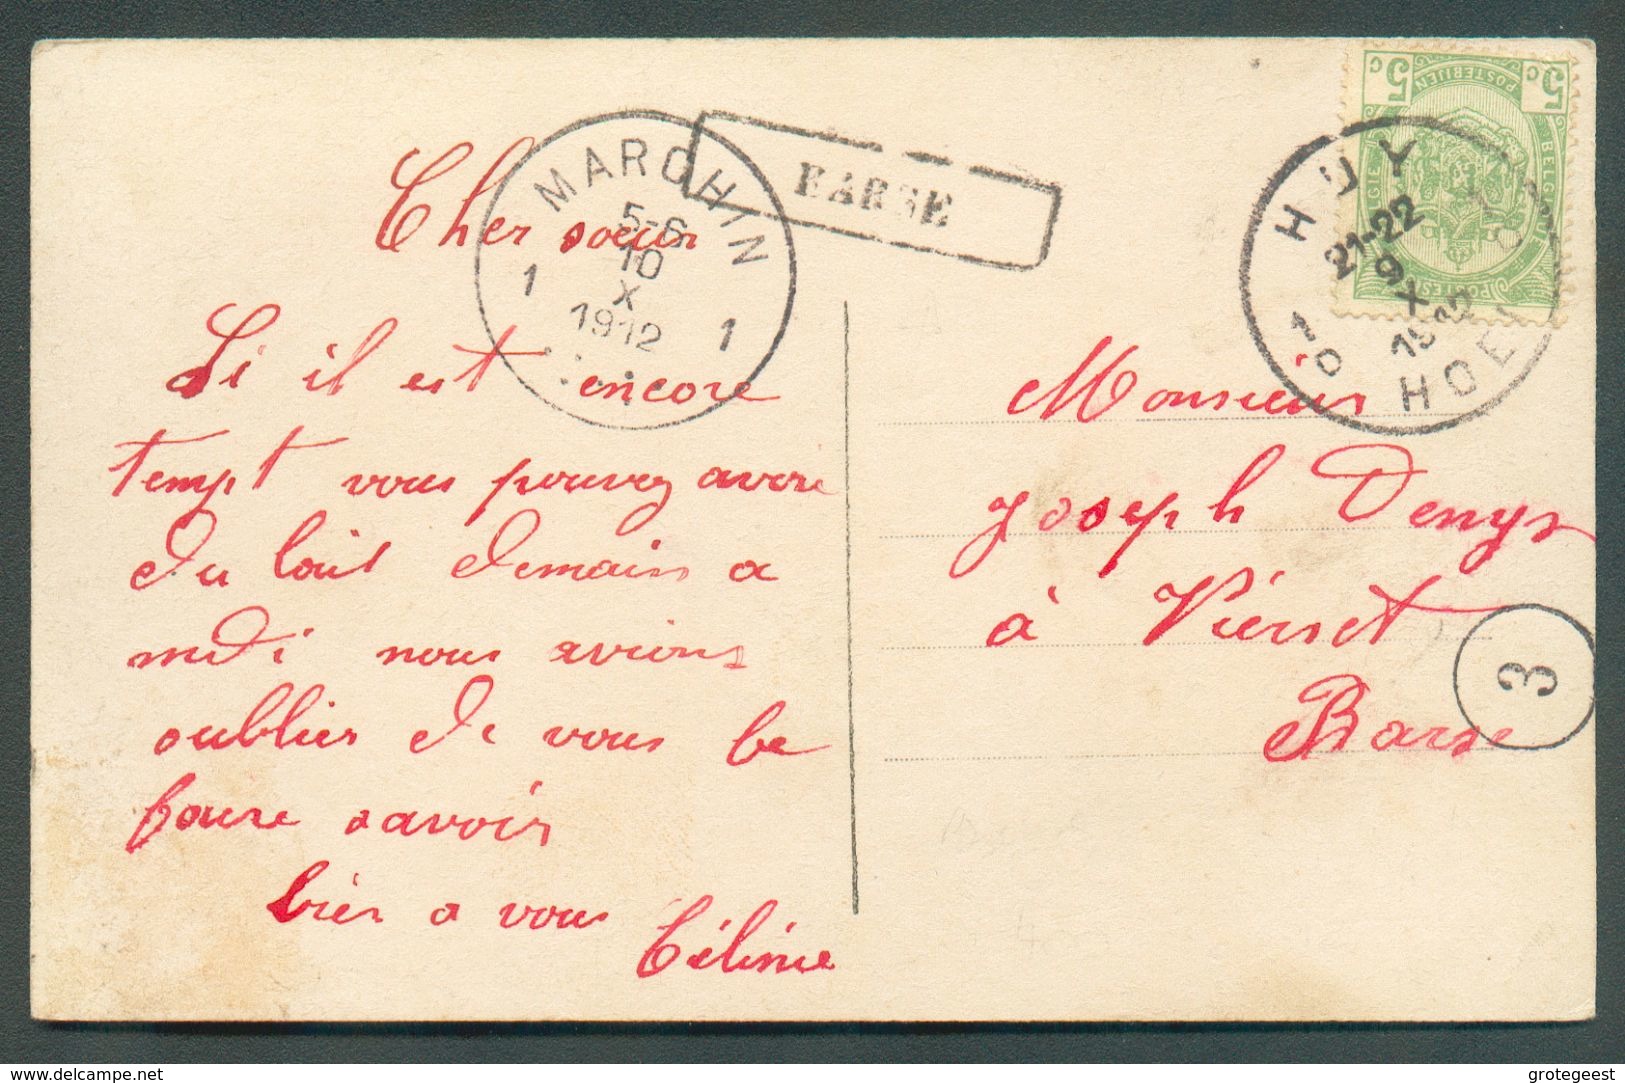 Cher soeur
Si il est encore
tempt vous pouvez avoire
du lait demain a
midi nous avions
oublier de vous le
faire savoir
bien a vous
Céline
MARCHIN
5-6
10
X
1912
1 1
BARSE
HUY
21-22
9
X
1912
HOEI
1
5 C 5 C
POSTERIJEN
BELGIË
POSTES
Monsieur
Joseph Denys
à Vierset
Barse
3
www.delcampe.net
grotegeest